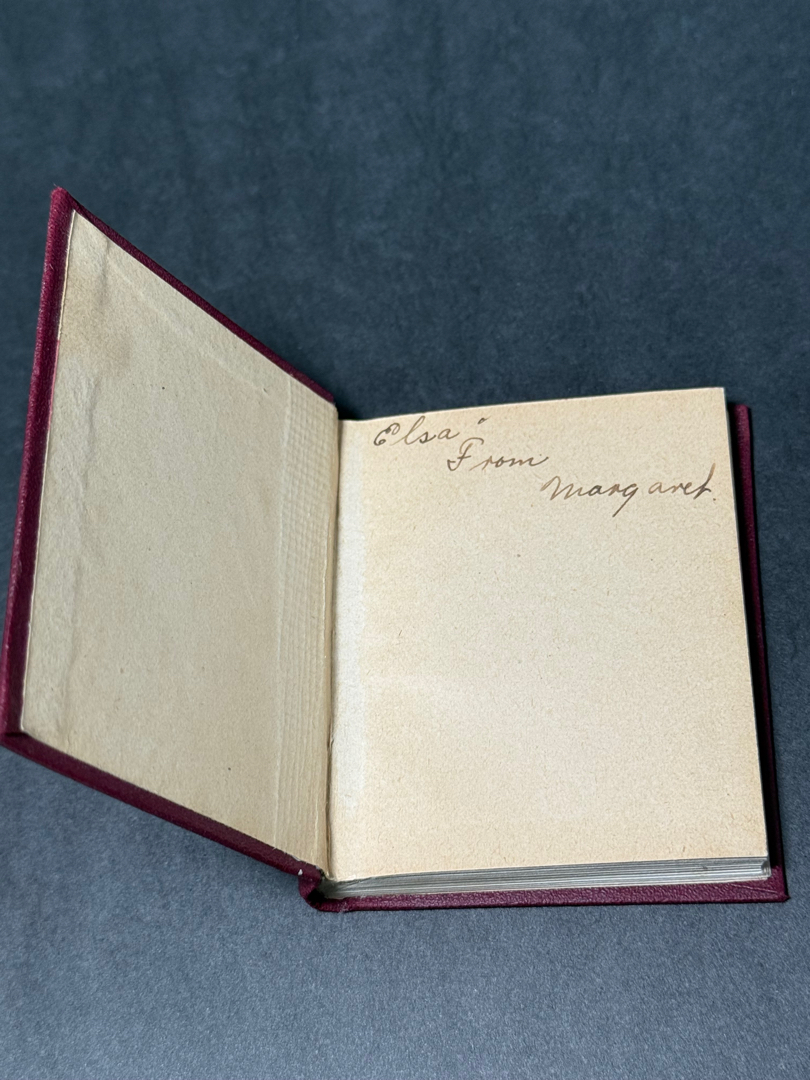 Elsa
From
Margaret.